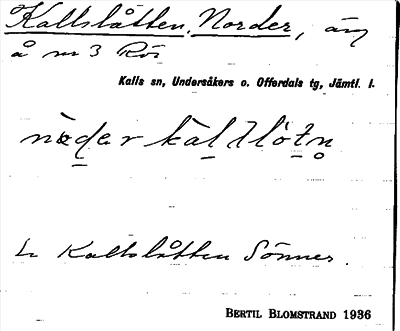 Kallslåtten, Norder, äng
å nr 3 Rör
Kalls sn, Undersåkers o. Offerdals tg, Jämtl. l.
nǝḍer kaḷlløṭn̥
Kallslåtten Sönner.
BERTIL BLOMSTRAND 1936